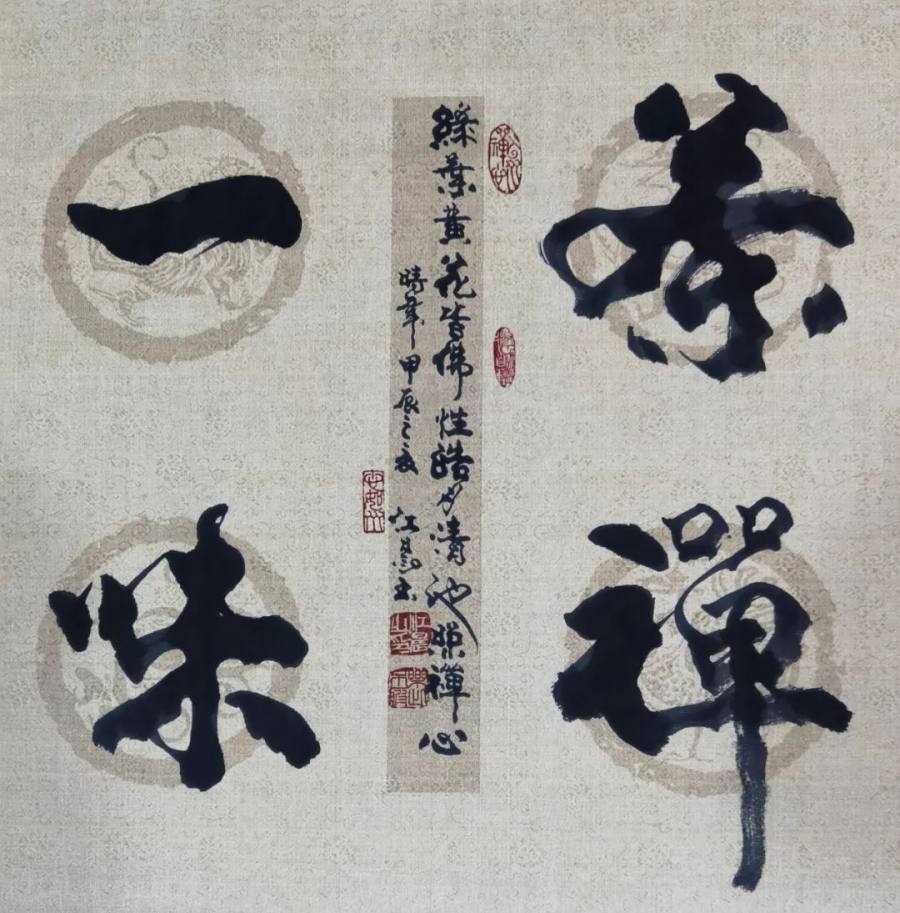 茶禪
一味
綠葉黄花皆佛性皓月清池照禪心
甲辰之夏